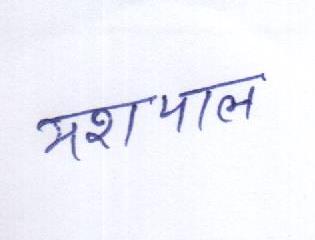 यशपाल